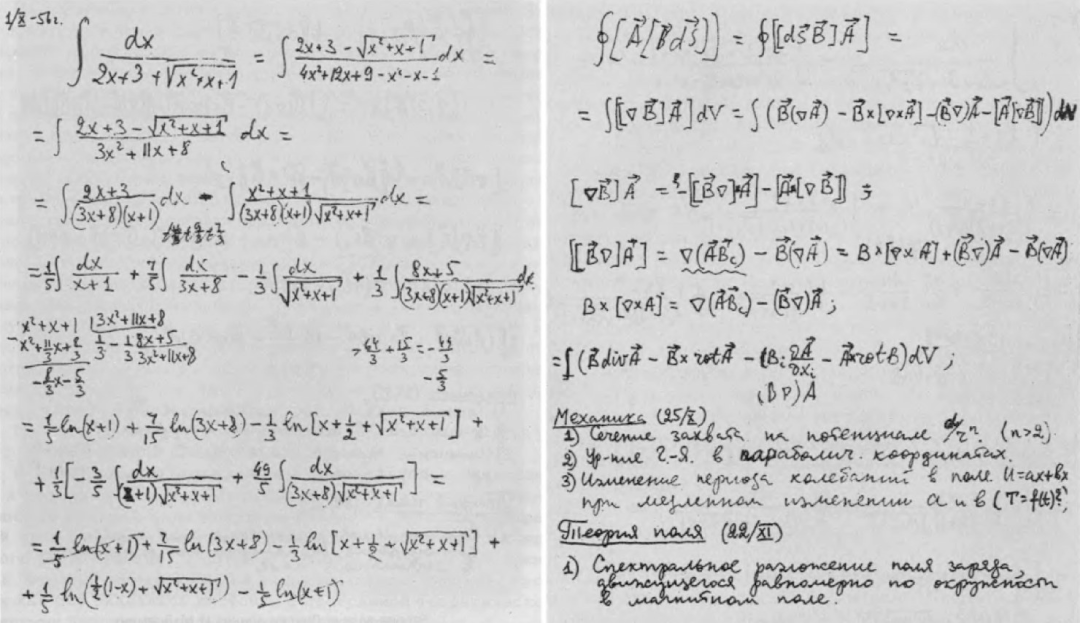 1/X-56г.
∫ dx / (2x+3+√(x²+x+1)) = ∫ (2x+3-√(x²+x+1)) / (4x²+12x+9-x²-x-1) dx =
= ∫ (2x+3-√(x²+x+1)) / (3x²+11x+8) dx =
= ∫ (2x+3) / ((3x+8)(x+1)) dx - ∫ (x²+x+1) / ((3x+8)(x+1)√(x²+x+1)) dx =
= 1/5 ∫ dx/(x+1) + 7/5 ∫ dx/(3x+8) - 1/3 ∫ dx/√(x²+x+1) + 1/3 ∫ (8x+5) / ((3x+8)(x+1)√(x²+x+1)) dx
x²+x+1 | 3x²+11x+8
x²+11/3 x+8/3 | 1/3 - 1/3 (8x+5)/(3x²+11x+8)
-8/3 x - 5/3
-64/3 + 15/3 = -49/3
-5/3
= 1/5 ln(x+1) + 7/15 ln(3x+8) - 1/3 ln[x+1/2+√(x²+x+1)] +
+ 1/3 [-3/5 ∫ dx/((x+1)√(x²+x+1)) + 49/5 ∫ dx/((3x+8)√(x²+x+1))] =
= 1/5 ln(x+1) + 7/15 ln(3x+8) - 1/3 ln[x+1/2+√(x²+x+1)] +
+ 1/5 ln(1/2(1-x)+√(x²+x+1)) - 1/5 ln(x+1)
∮[A⃗[B⃗dS⃗]] = ∮[[dS⃗B⃗]A⃗] =
= ∫[[∇B⃗]A⃗]dV = ∫(B⃗(∇A⃗) - B⃗×[∇×A⃗] - (B⃗∇)A⃗ - [A⃗[∇B⃗]])dV
[∇B⃗]A⃗ = -[[B⃗∇]A⃗] - [A⃗[∇B⃗]] ;
[[B⃗∇]A⃗] = ∇(A⃗B⃗c) - B⃗(∇A⃗) = B×[∇×A] + (B⃗∇)A⃗ - B⃗(∇A⃗)
B×[∇×A] = ∇(A⃗B⃗c) - (B⃗∇)A⃗ ;
= ∫(B⃗divA⃗ - B⃗×rotA⃗ - (Bᵢ ∂A⃗/∂xᵢ - A⃗×rotB)dV ;
(B∇)A⃗
Механика (25/X)
1) Сечение захвата на потенциал α/rⁿ. (n>2)
2) Ур-ние Г.-Я. в параболич. координатах.
3) Изменение периода колебаний в поле U=ax+bx
при медленном изменении a и b (T=f(t)?)
Теория поля (22/XI)
1) Спектральное разложение поля заряда,
движущегося равномерно по окружности
в магнитном поле.